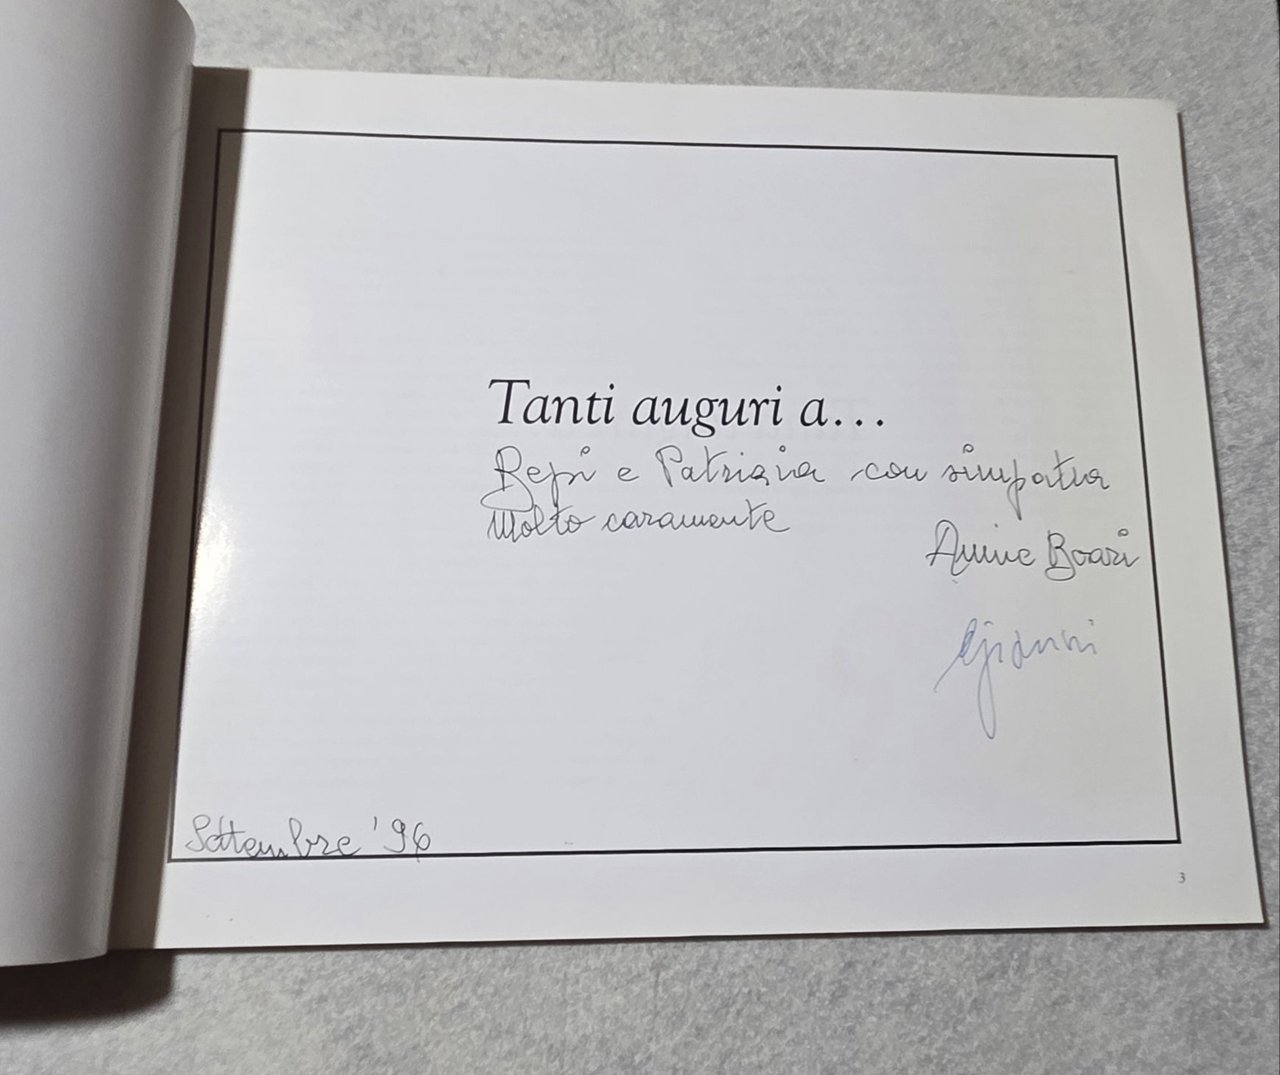 Tanti auguri a...
Bepi e Patrizia con simpatia
Molto caramente
Boari
Gianni
Settembre '96
3